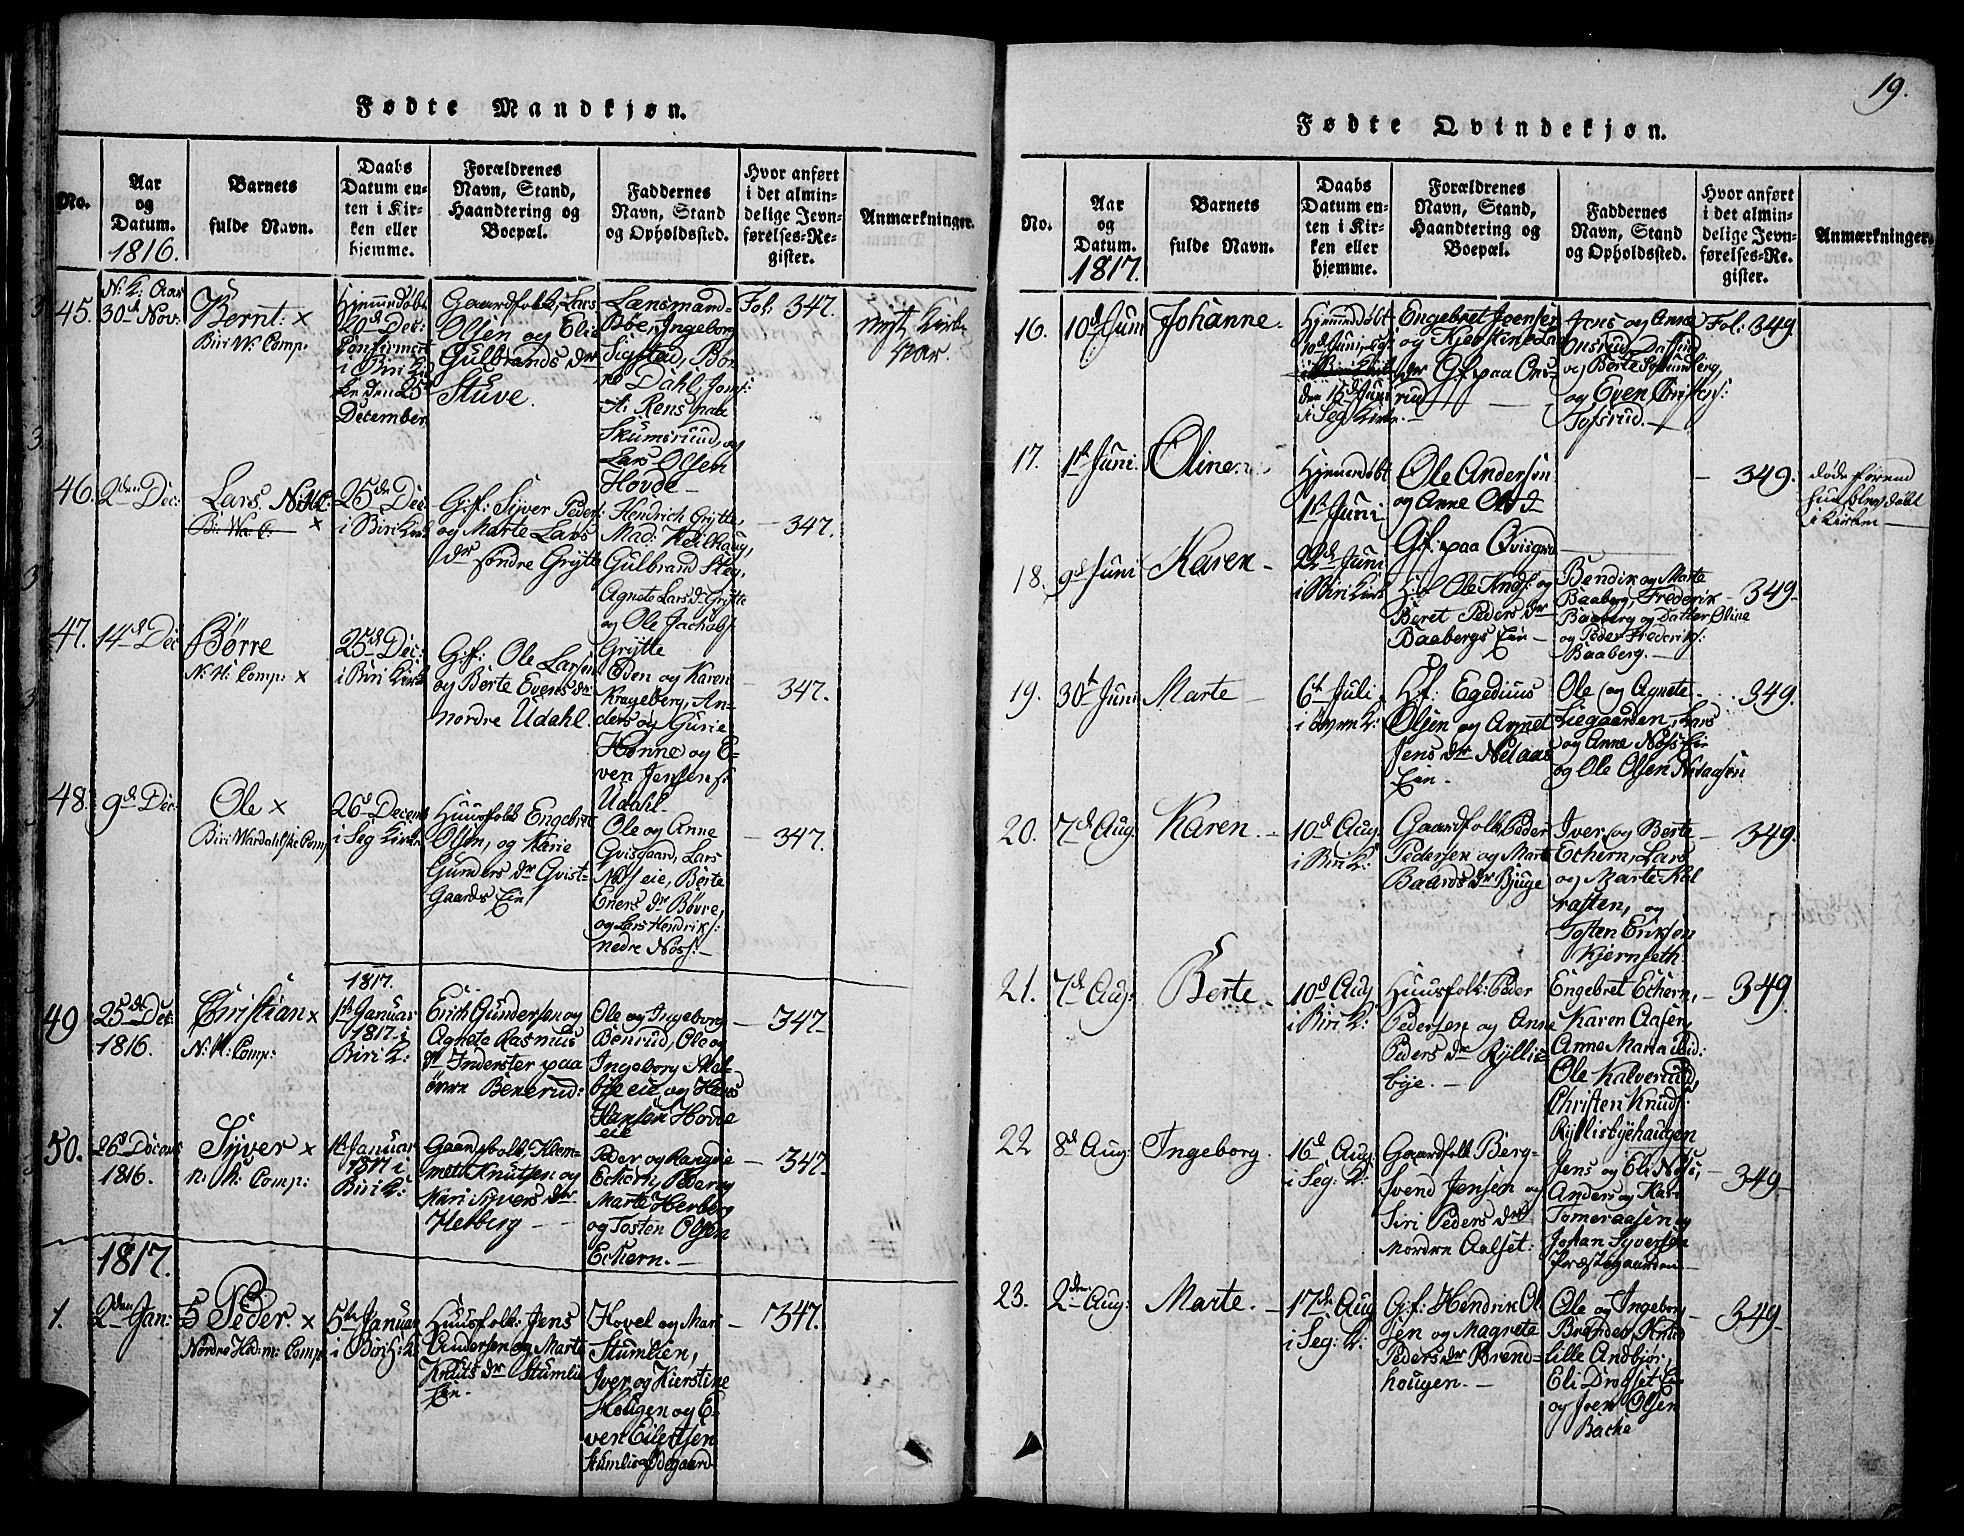 Fødte Mandkjøn.
No.
Aar
og
Datum.
1816.
Barnets
fulde Navn.
Daabs
Datum en-
ten i Kir-
ken eller
hjemme.
Forældrenes
Navn, Stand,
Haandtering og
Boepæl.
Faddernes
Navn, Stand
og Opholdssted.
Hvor anført
i det almin-
delige Jevn-
førelses-Re-
gister.
Anmærkninger.
45.
30d Nov:
Bernt: ×
Biri W: Comp:
Hjemmedøbt
20d Dec:
Confirmert
i Biri Kir
ke den 25d
December
Gaardfolk, Lars
Olsen og Elie
Gulbrands dr
Stuve.
Lænsmand
Böe, Ingeborg
Sigstad, Bör
re Dahl, Jom:
A: Rens paa
Skumsruud, og
Lars Olsen
Hovde
Fol: 347.
46.
2den Dec:
Lars. N: M: C:
B: W: C: ×
25de Dec
i Biri Kirk
G:f: Siver Peder
og Marte Lars
dr søndre Grÿtte
Hendrich Grÿtte,
Mad: Heilhaug,
Gulbrand Steg,
Agnete Lars dr Grÿtte
og Ole Jachobs:
Grÿtte
347.
47.
14d Dec
Børre
N: N: Comp: ×
25d Dec:
i Biri Kirk
G:f: Ole Larsen
og Berte Evens dr
nordre Udahl.
Eden og Karen
Krageberg, An-
ders og Gurie
Hønne og E-
ven Jensen s:
Udahl
347.
48.
9d Dec:
Ole ×
Biri Wardahlske Comp
26d Decem
i Seg Kirk
Huusfolk Engebret
Olsen, og Marie
Gunders dr Qvist-
Gaards Eie
Ole og Anne
Qvisgaard, Lars
Nøss eie, Berte
Eners dr Bøvre,
og Lars Hendrik s:
nedre Nøss:
347.
49
25de Dec
1816.
Christian ×
N: N: Comp:
1817.
1ste Januar
1817 i
Biri K:
Erich Gundersen og
Agnete Rasmus
dr Inderster paa
Benerud:
Ole og Ingeborg
Benrud, Ole og
Ingeborg
eie, og Hans
Hansen Hovde
eie
347.
50.
26d Decem
1816.
Syver ×
n: N: Comp:
1ste Januar
1817 i
Biri K:
Gaardfolk Klem-
met Knutsen og
Mari Syvers dr
Heberg
Peder og Rangnie
Echern, Peder og
Marte Herberg
og Tosten Olsen
Echern.
347.
1817.
1.
2den Jan:
5 Peder. ×
Nordre Hed: m: Comp
5te Januar
i Biri K:
Huusfolk Jens
Andersen og Marte
Knuts dr Stumlie
Eie.
Hovel og Mar
Stumlien,
Iver og Kierstine
Hougen og E-
ven Eilertsen
Stumlie Ødegaard
347.
19.
Fødte Qvindekjøn.
No.
Aar
og
Datum.
1817.
Barnets
fulde Navn.
Daabs
Datum en-
ten i Kir-
ken eller
hjemme.
Forældrenes
Navn, Stand,
Haandtering og
Boepæl.
Faddernes
Navn, Stand
og Opholdssted.
Hvor anført
i det almin-
delige Jevn-
førelses-Re-
gister.
Anmærkninger.
16.
10d Juni
Johanne.
Hjemmedøbt
10d Juni,
den 15d Juni
i Seg Kirke.
Engebret Joensen
og Kierstine Lars
dr G:f: paa Ons-
rud
Jens og Anne
Onsrud,
Berte
og Even Christens:
Tofsrud.
Fol: 349
17.
1ste Juni.
Oline
Hjemmedøbt
1ste Juni
Ole Andersen
og Anne
G:f: paa Qvisgrd
349.
døde førend
hun blev døbt
i Kirken
18.
9d Juni
Karen
22d Juni
i Biri Kirk
H:f: Ole Knds: og
Beret Peders dr
Baabergs Eie
Bendik og Marte
Baaberg, Frederik
Baaberg og Datter Oline
og Peder Frederiks:
Baaberg.
349
19.
30te Juni
Marte
6te Juli
i K:
Hf: Egedius
Olsen og Annet
Jens dr Nedaas
Eie
Ole og Agnete
Liegaarden, Lars
og Anne Nøss Eie
og Ole Olsen Nedaasen
349.
20.
7de Aug
Karen.
10d Aug
i Biri K:
Gaardfolk Peder
Pedersen og Marte
Baards dr Bjuge
Iver og Berte
Echern, Lars
og Marte Kal
rasten, og
Tosten Eriksen
Kjernseth.
349.
21.
7de Aug:
Berte
10d Aug
i Biri K:
Huusfolk: Peder
Pedersen og Anne
Peders dr Rÿllis
bÿe.
Engebret Echern,
Karen Aasen,
Anne Maria ibid:
Ole Kalverud,
Christen Knuds:
Rÿllisbÿehaugen
349.
22
8d Aug:
Ingeborg.
16d Aug
i Seg: K:
Gaardfolk Berg-
Svend Jensen og
Siri Peders dr
Nordre Aalset:
Jens og Eli Nøss,
Anders og Kari
Tomeraasen og
Johan Syversen
Præstegaarden
349
23.
2den Aug:
Marte.
17de Aug
i Seg: K:
G:f: Hendrik Ol
sen og Magnete
Peders dr Brend-
hougen.
Ole og Ingeborg
Brenden, Knud
lille Andbjør,
Eli Drogset Eie
og Joen Olsen
Bache
349